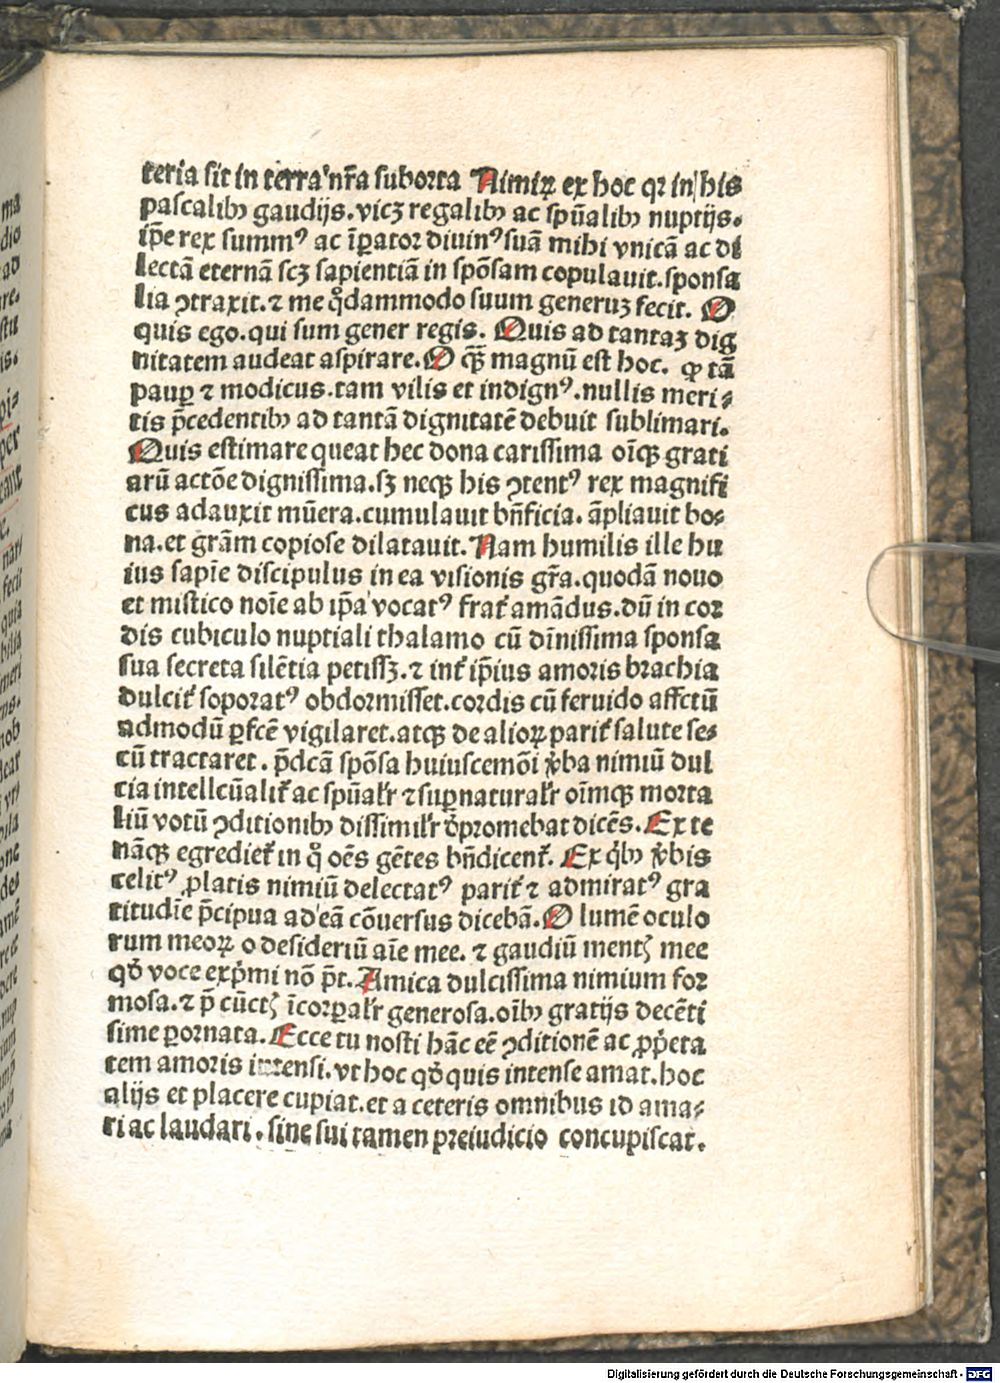 teria sit in terra nr̄a suborta Nimiꝝ ex hoc qꝛ in his
pascalibꝫ gaudijs.vicꝫ regalibꝫ ac spūalibꝫ nuptijs.
ip̄e rex summꝰ ac īꝑator diuinꝰ suā mihi vnicā ac di
lectā eternā scꝫ sapientiā in spōsam copulauit.sponsa
lia ꝯtraxit.⁊ me qͦdammodo suum generuꝫ fecit. O
quis ego.qui sum gener regis. Quis ad tantaꝫ dig
nitatem audeat aspirare. O qͣꝫ magnū est hoc. ꝙ tā
pauꝑ ⁊ modicus.tam vilis et indignꝰ.nullis meri⸗
tis p̄cedentibꝫ ad tantā dignitatē debuit sublimari.
Quis estimare queat hec dona carissima oīqꝫ grati
arū actōe dignissima.sꝫ neqꝫ his ꝯtentꝰ rex magnifi
cus adauxit mūera.cumulauit bn̄ficia.āpliauit bo⸗
na.et grām copiose dilatauit. Nam humilis ille hu
ius sapīe discipulus in ea visionis gr̄a.quodā nouo
et mistico noīe ab ip̄a vocatꝰ frat̄ amādus.dū in cor
dis cubiculo nuptiali thalamo cū dīnissima sponsa
sua secreta silētia petissꝫ.⁊ int̄ ip̄ius amoris brachia
dulcit̄ soporatꝰ obdormisset.cordis cū feruido affctū
admodū ꝑfcē vigilaret.atqꝫ de alioꝝ parit̄ salute se⸗
cū tractaret. p̄dcā spōsa huiuscemōi v̾ba nimiū dul
cia intellcūalit̄ ac spūalr̄ ⁊ suꝑnaturalr̄ oīmqꝫ morta
liū votū ꝯditionibꝫ dissimilr̄ ꝺ̄promebat dicēs. Ex te
nāqꝫ egrediet̄ in qͦ oēs gētes bn̄dicent̄. Ex qͥbꝫ v̾bis
celitꝰ ꝓlatis nimiū delectatꝰ parit̄ ⁊ admiratꝰ gra
titudīe p̄cipua ad eā cōuersus dicebā. O lumē oculo
rum meoꝝ o desideriū aīe mee. ⁊ gaudiū mentꝭ mee
qꝺ̄ voce exp̄mi nō p̄t. Amica dulcissima nimium for
mosa.⁊ p̄ cūctꝭ īcorꝑalr̄ generosa.oībꝫ gratijs decēti
sime ꝑornata. Ecce tu nosti hāc eē ꝯditionē ac ꝓp̄eta
tem amoris intensi.vt hoc qꝺ̄ quis intense amat.hoc
alijs et placere cupiat.et a ceteris omnibus id ama⸗
ri ac laudari.sine sui tamen preiudicio concupiscat.
Digitalisierung gefördert durch die Deutsche Forschungsgemeinschaft - DFG